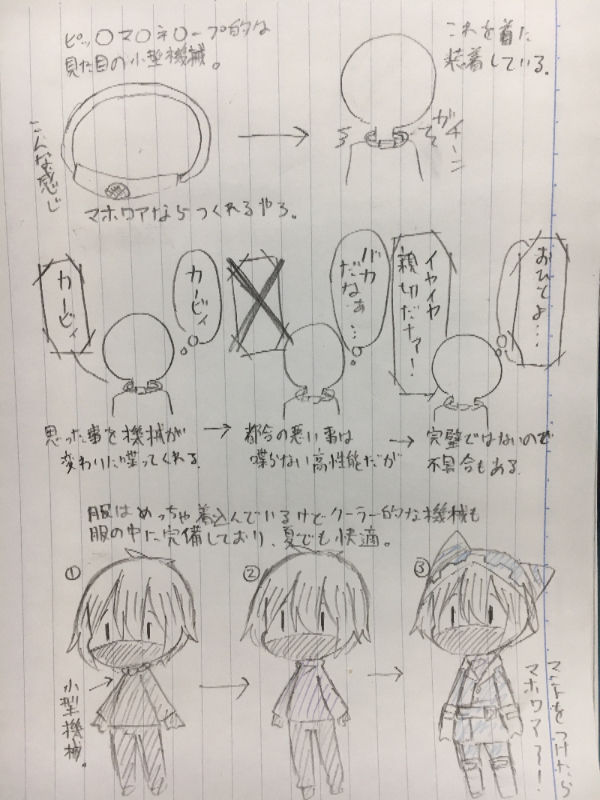 ピッ〇マ〇ネ〇ープ的な
見た目の小型機械。
これを着た
装着している。
こんな感じ
ガチーン
マホロアならつくれるやろ。
カービィ
カービィ
バカ
だなぁ…
イヤイヤ
親切だナァ！
おひとよ…
思った事を機械が
変わりに喋ってくれる
都合の悪い事は
喋らない高性能だが
完璧ではないので
不具合もある。
服はめっちゃ着込んでいるけどクーラー的な機械も
服の中に完備しており、夏でも快適。
①
②
③
小型機械。
マントをつけたら
マホロア!!